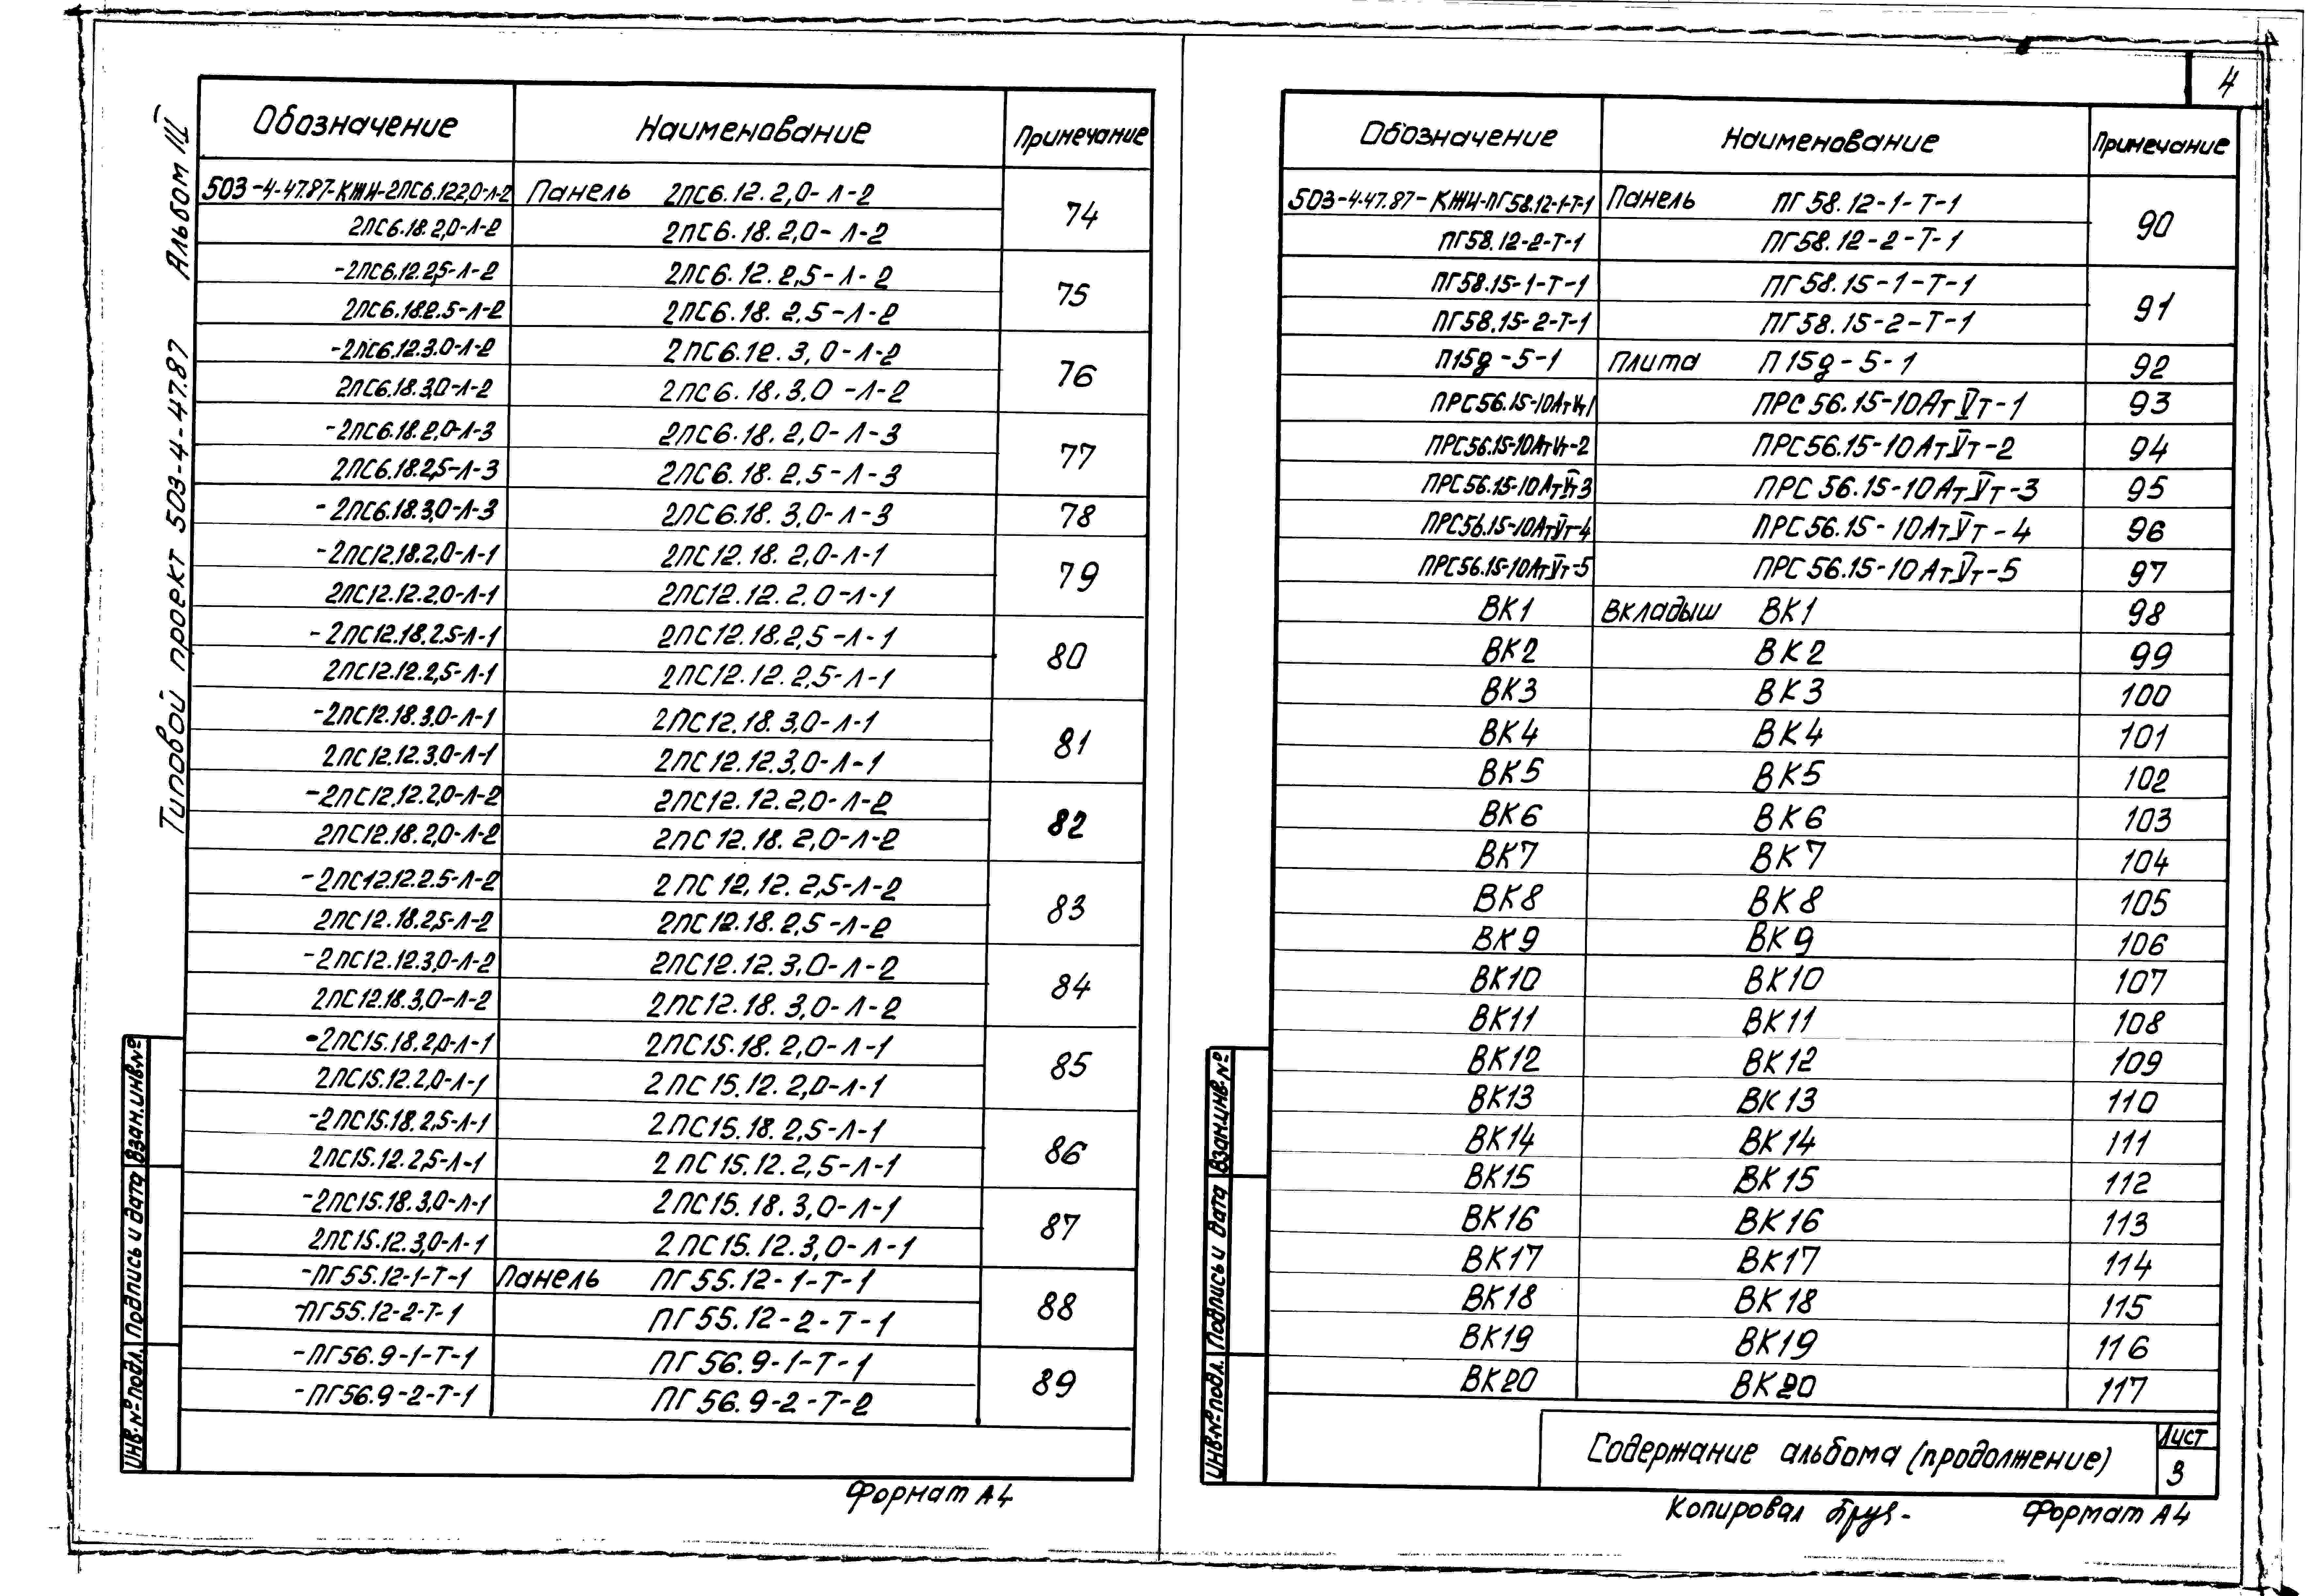 Типовой проект 503-4-47.87 Альбом III
Обозначение Наименование Примечание
503-4-47.87-КЖИ-2ПС6.12.2,0-Л-2 Панель 2ПС6.12.2,0-Л-2 74
2ПС6.18.2,0-Л-2 2ПС6.18.2,0-Л-2
-2ПС6.12.2,5-Л-2 2ПС6.12.2,5-Л-2 75
2ПС6.18.2.5-Л-2 2ПС6.18.2,5-Л-2
-2ПС6.12.3.0-Л-2 2ПС6.12.3,0-Л-2 76
2ПС6.18.3,0-Л-2 2ПС6.18.3,0-Л-2
-2ПС6.18.2,0-Л-3 2ПС6.18.2,0-Л-3 77
2ПС6.18.2,5-Л-3 2ПС6.18.2,5-Л-3
-2ПС6.18.3,0-Л-3 2ПС6.18.3,0-Л-3 78
-2ПС12.18.2,0-Л-1 2ПС12.18.2,0-Л-1 79
2ПС12.12.2,0-Л-1 2ПС12.12.2.0-Л-1
-2ПС12.18.2.5-Л-1 2ПС12.18.2,5-Л-1 80
2ПС12.12.2,5-Л-1 2ПС12.12.2,5-Л-1
-2ПС12.18.3.0-Л-1 2ПС12.18.3,0-Л-1 81
2ПС12.12.3,0-Л-1 2ПС12.12.3,0-Л-1
-2ПС12.12.2,0-Л-2 2ПС12.12.2,0-Л-2 82
2ПС12.18.2,0-Л-2 2ПС12.18.2,0-Л-2
-2ПС12.12.2.5-Л-2 2ПС12.12.2,5-Л-2 83
2ПС12.18.2,5-Л-2 2ПС12.18.2,5-Л-2
-2ПС12.12.3,0-Л-2 2ПС12.12.3,0-Л-2 84
2ПС12.18.3,0-Л-2 2ПС12.18.3,0-Л-2
-2ПС15.18.2,0-Л-1 2ПС15.18.2,0-Л-1 85
2ПС15.12.2,0-Л-1 2ПС15.12.2,0-Л-1
-2ПС15.18.2,5-Л-1 2ПС15.18.2,5-Л-1 86
2ПС15.12.2,5-Л-1 2ПС15.12.2,5-Л-1
-2ПС15.18.3,0-Л-1 2ПС15.18.3,0-Л-1 87
2ПС15.12.3,0-Л-1 2ПС15.12.3,0-Л-1
-ПГ55.12-1-Т-1 Панель ПГ55.12-1-Т-1 88
-ПГ55.12-2-Т-1 ПГ55.12-2-Т-1
-ПГ56.9-1-Т-1 ПГ56.9-1-Т-1 89
-ПГ56.9-2-Т-1 ПГ56.9-2-Т-2
Взам.инв.№
Подпись и дата
Инв.№ подл.
Формат А4
4
Обозначение Наименование Примечание
503-4-47.87-КЖИ-ПГ58.12-1-Т-1 Панель ПГ58.12-1-Т-1 90
ПГ58.12-2-Т-1 ПГ58.12-2-Т-1
ПГ58.15-1-Т-1 ПГ58.15-1-Т-1 91
ПГ58.15-2-Т-1 ПГ58.15-2-Т-1
П15д-5-1 Плита П15д-5-1 92
ПРС56.15-10АтVт1 ПРС56.15-10АтVт-1 93
ПРС56.15-10АтVт-2 ПРС56.15-10АтVт-2 94
ПРС56.15-10АтVт3 ПРС56.15-10АтVт-3 95
ПРС56.15-10АтVт-4 ПРС56.15-10АтVт-4 96
ПРС56.15-10АтVт-5 ПРС56.15-10АтVт-5 97
ВК1 Вкладыш ВК1 98
ВК2 ВК2 99
ВК3 ВК3 100
ВК4 ВК4 101
ВК5 ВК5 102
ВК6 ВК6 103
ВК7 ВК7 104
ВК8 ВК8 105
ВК9 ВК9 106
ВК10 ВК10 107
ВК11 ВК11 108
ВК12 ВК12 109
ВК13 ВК13 110
ВК14 ВК14 111
ВК15 ВК15 112
ВК16 ВК16 113
ВК17 ВК17 114
ВК18 ВК18 115
ВК19 ВК19 116
ВК20 ВК20 117
Взам.инв.№
Подпись и дата
Инв.№ подл.
Содержание альбома (продолжение) Лист
3
Копировал Формат А4